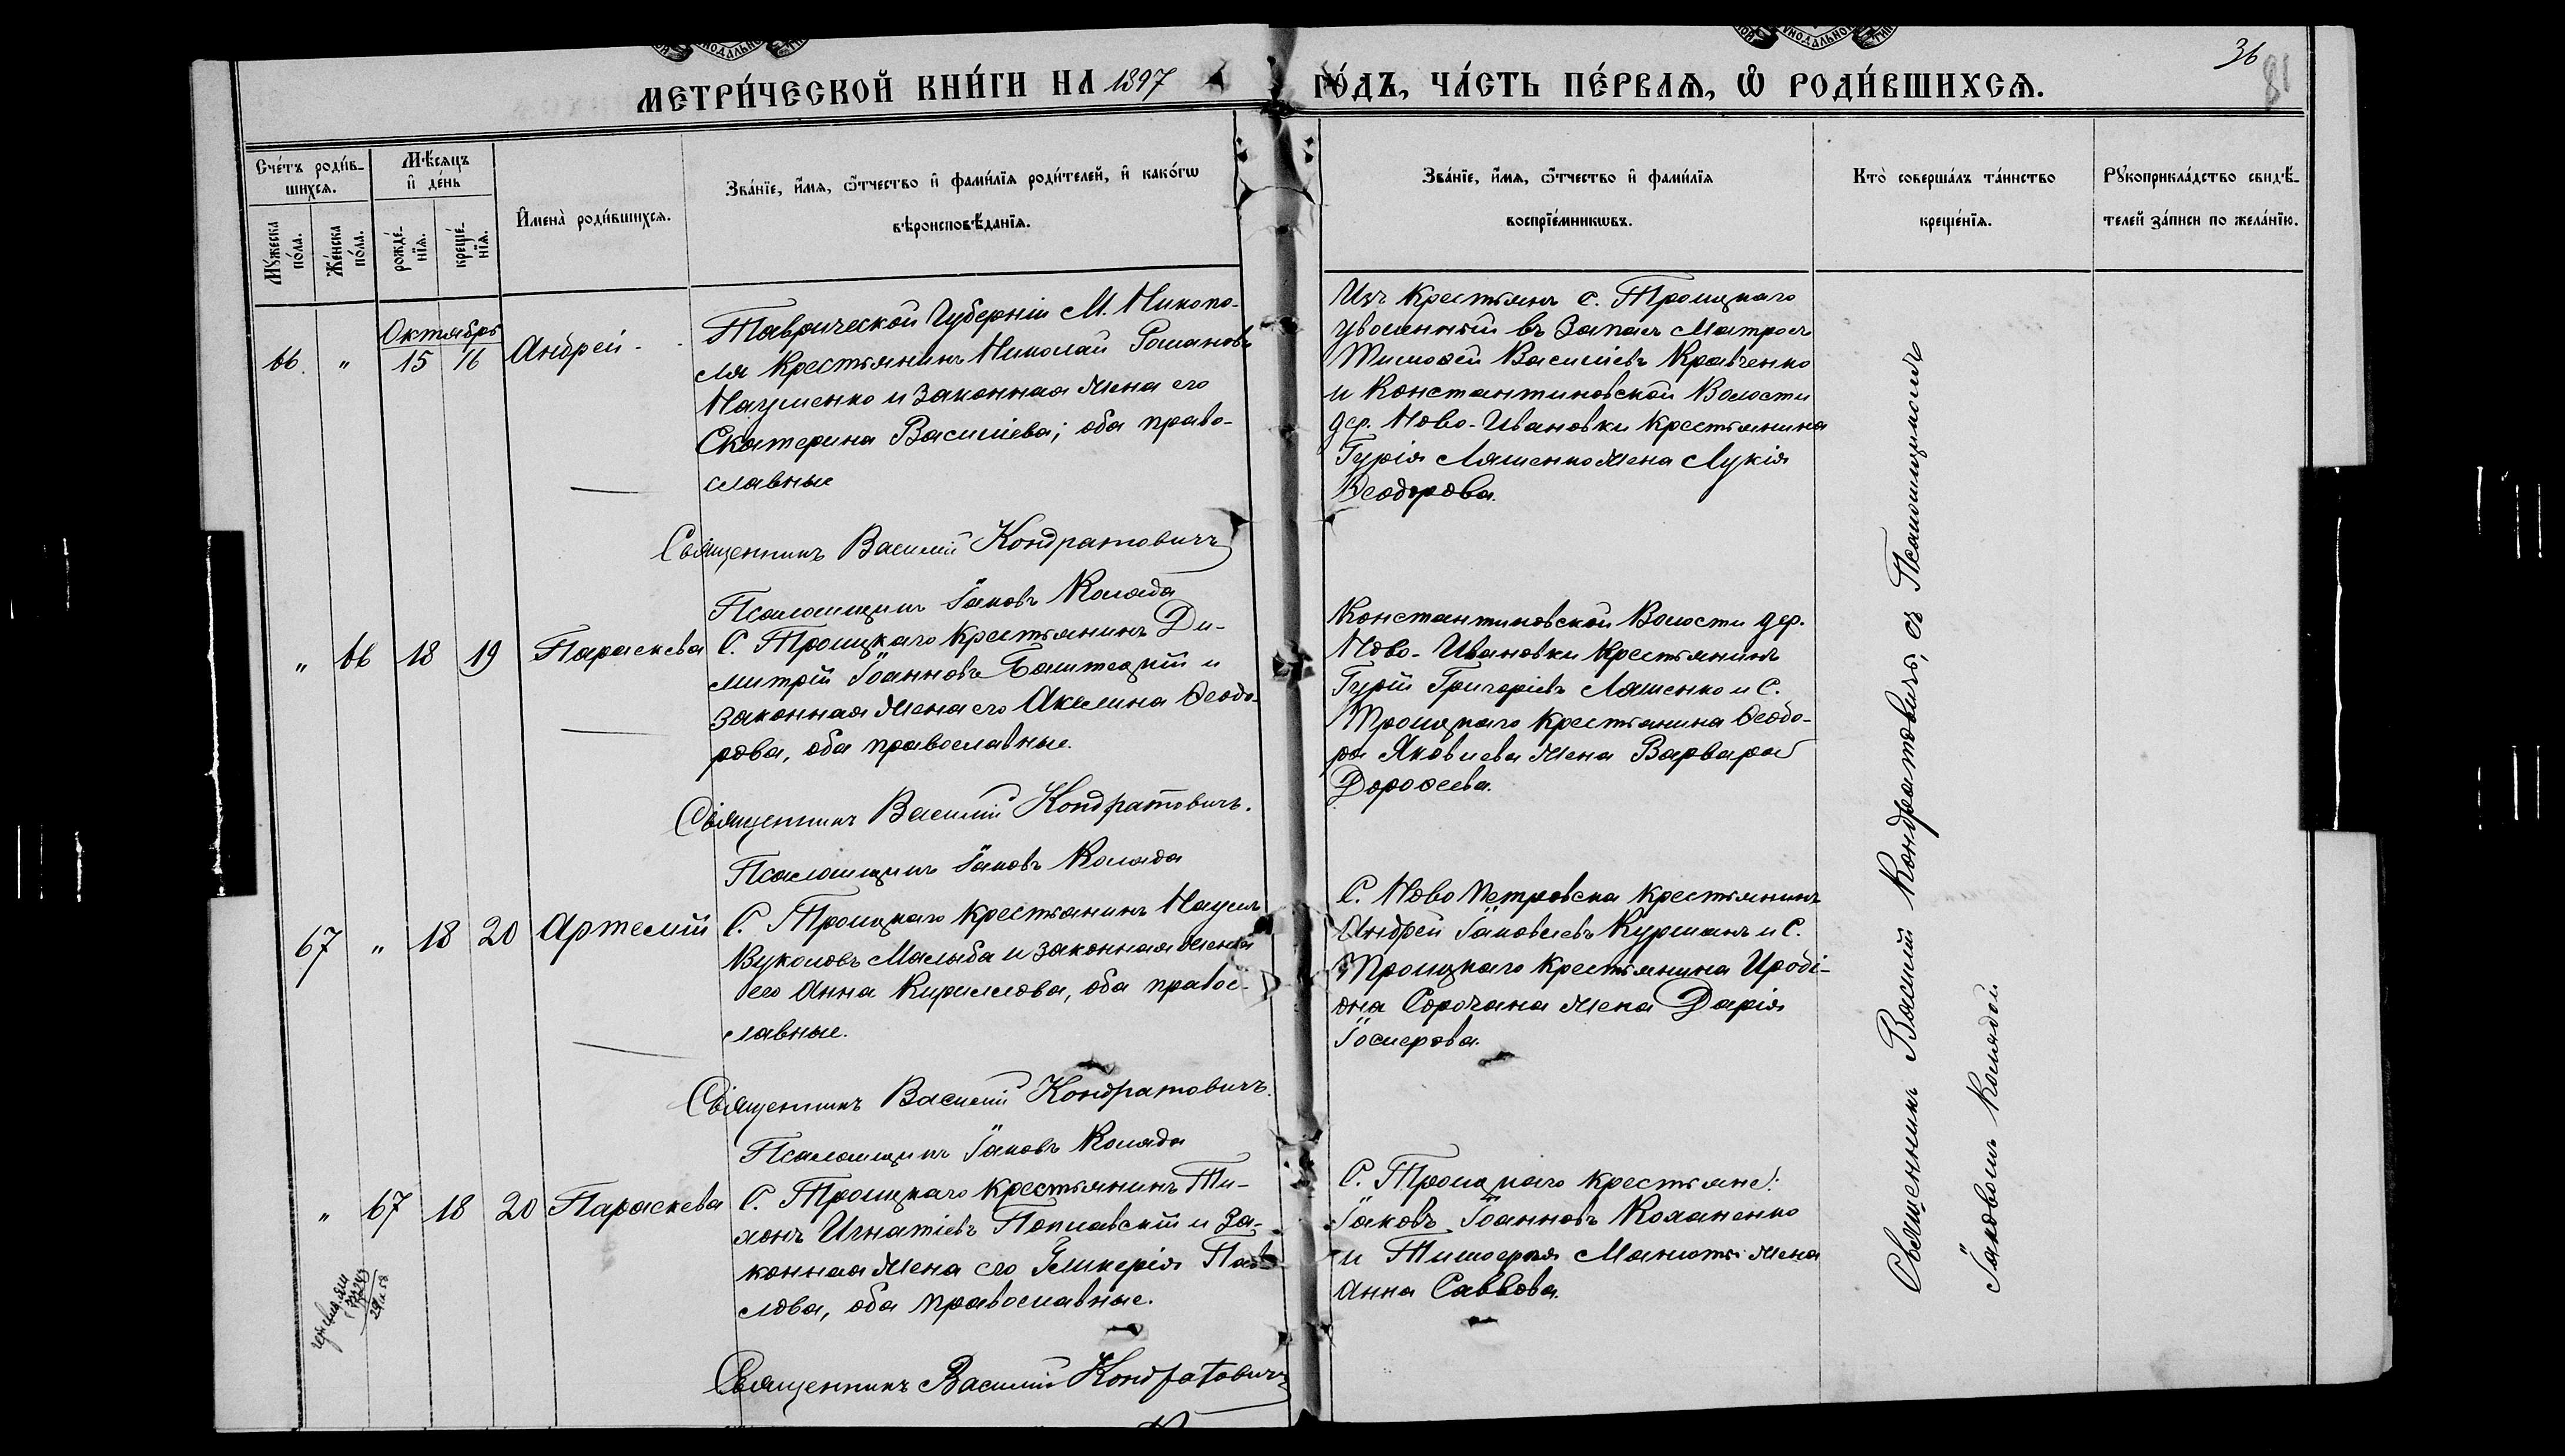 МЕТРИ́ЧЕСКОЙ КНИ́ГИ НА 1897 ГО́ДЪ, ЧА́СТЬ ПЕ́РВАѦ, Ѡ҆ РОДИ́ВШИХСѦ.
36
81
Сче́тъ роди́в-
шихсѧ.
Мѣ́сѧцъ
и҆ де́нь
Мꙋ́жеска
по́ла.
Же́нска
по́ла.
рожде́-
нїѧ.
креще́-
нїѧ.
И҆мена̀ роди́вшихсѧ.
Зва́нїе, и҆́мѧ, ѻ҆́тчество и҆ фами́лїѧ роди́телей, и҆ како́гѡ
вѣроисповѣ́данїѧ.
Зва́нїе, и҆́мѧ, ѻ҆́тчество и҆ фами́лїѧ
воспрїе́мникѡвъ.
Кто̀ соверша́лъ та́инство
креще́нїѧ.
Рꙋкоприкла́дство свидѣ́-
телей за́писи по жела́нїю.
Октябрь
66. " 15 16 Андрей
Таврической Губерніи М. Никопо-
ля Крестьянинъ Николай Романовъ
Науменко и законная жена его
Екатерина Василіева; оба право-
славные
Священникъ Василій Кондратовичъ
Псаломщикъ Іаковъ Коляда
Изъ Крестьянъ с. Троицкаго
уволенный въ Запасъ Матросъ
Тимоѳей Василіевъ Кравченко
и Константиновской Волости
дер. Ново-Ивановки Крестьянина
Гурія Ляшенко жена Лукія
Ѳеодорова.
" 66 18 19 Параскева
С. Троицкаго Крестьянинъ Ди-
митрій Іоанновъ и
законная жена его Акилина Ѳеодо-
рова, оба православные.
Священникъ Василій Кондратовичъ.
Псаломщикъ Іаковъ Коляда
Константиновской Волости дер.
Ново-Ивановки Крестьянинъ
Гурій Григоріевъ Ляшенко и С.
Троицкаго Крестьянина Ѳеодо-
ра Яковлева жена Варвара
Дороѳеева.
67 " 18 20 Артемій
С. Троицкаго Крестьянинъ Наумъ
Вуколовъ Малыба и законная жена
его Анна Кириллова, оба правос-
лавные.
Священникъ Василій Кондратовичъ.
Псаломщикъ Іаковъ Коляда
С. Ново Петровска крестьянинъ
Андрей Іаковлевъ Курманъ и С.
Троицкаго Крестьянина Ироді-
она Сорочана жена Дарія
" 67 18 20 Параскева
С. Троицкаго крестьянинъ Ти-
хонъ Игнатіевъ Поплавскій и за-
конная жена его Гликерія Пав-
лова, оба православные.
Священникъ Василій Кондратовичъ
С. Троицкаго крестьяне:
Іаковъ Іоанновъ Коханенко
и жена
Анна Саввова.
Священникъ Василій Кондратовичъ, съ Псаломщикомъ
Іаковомъ Колядой